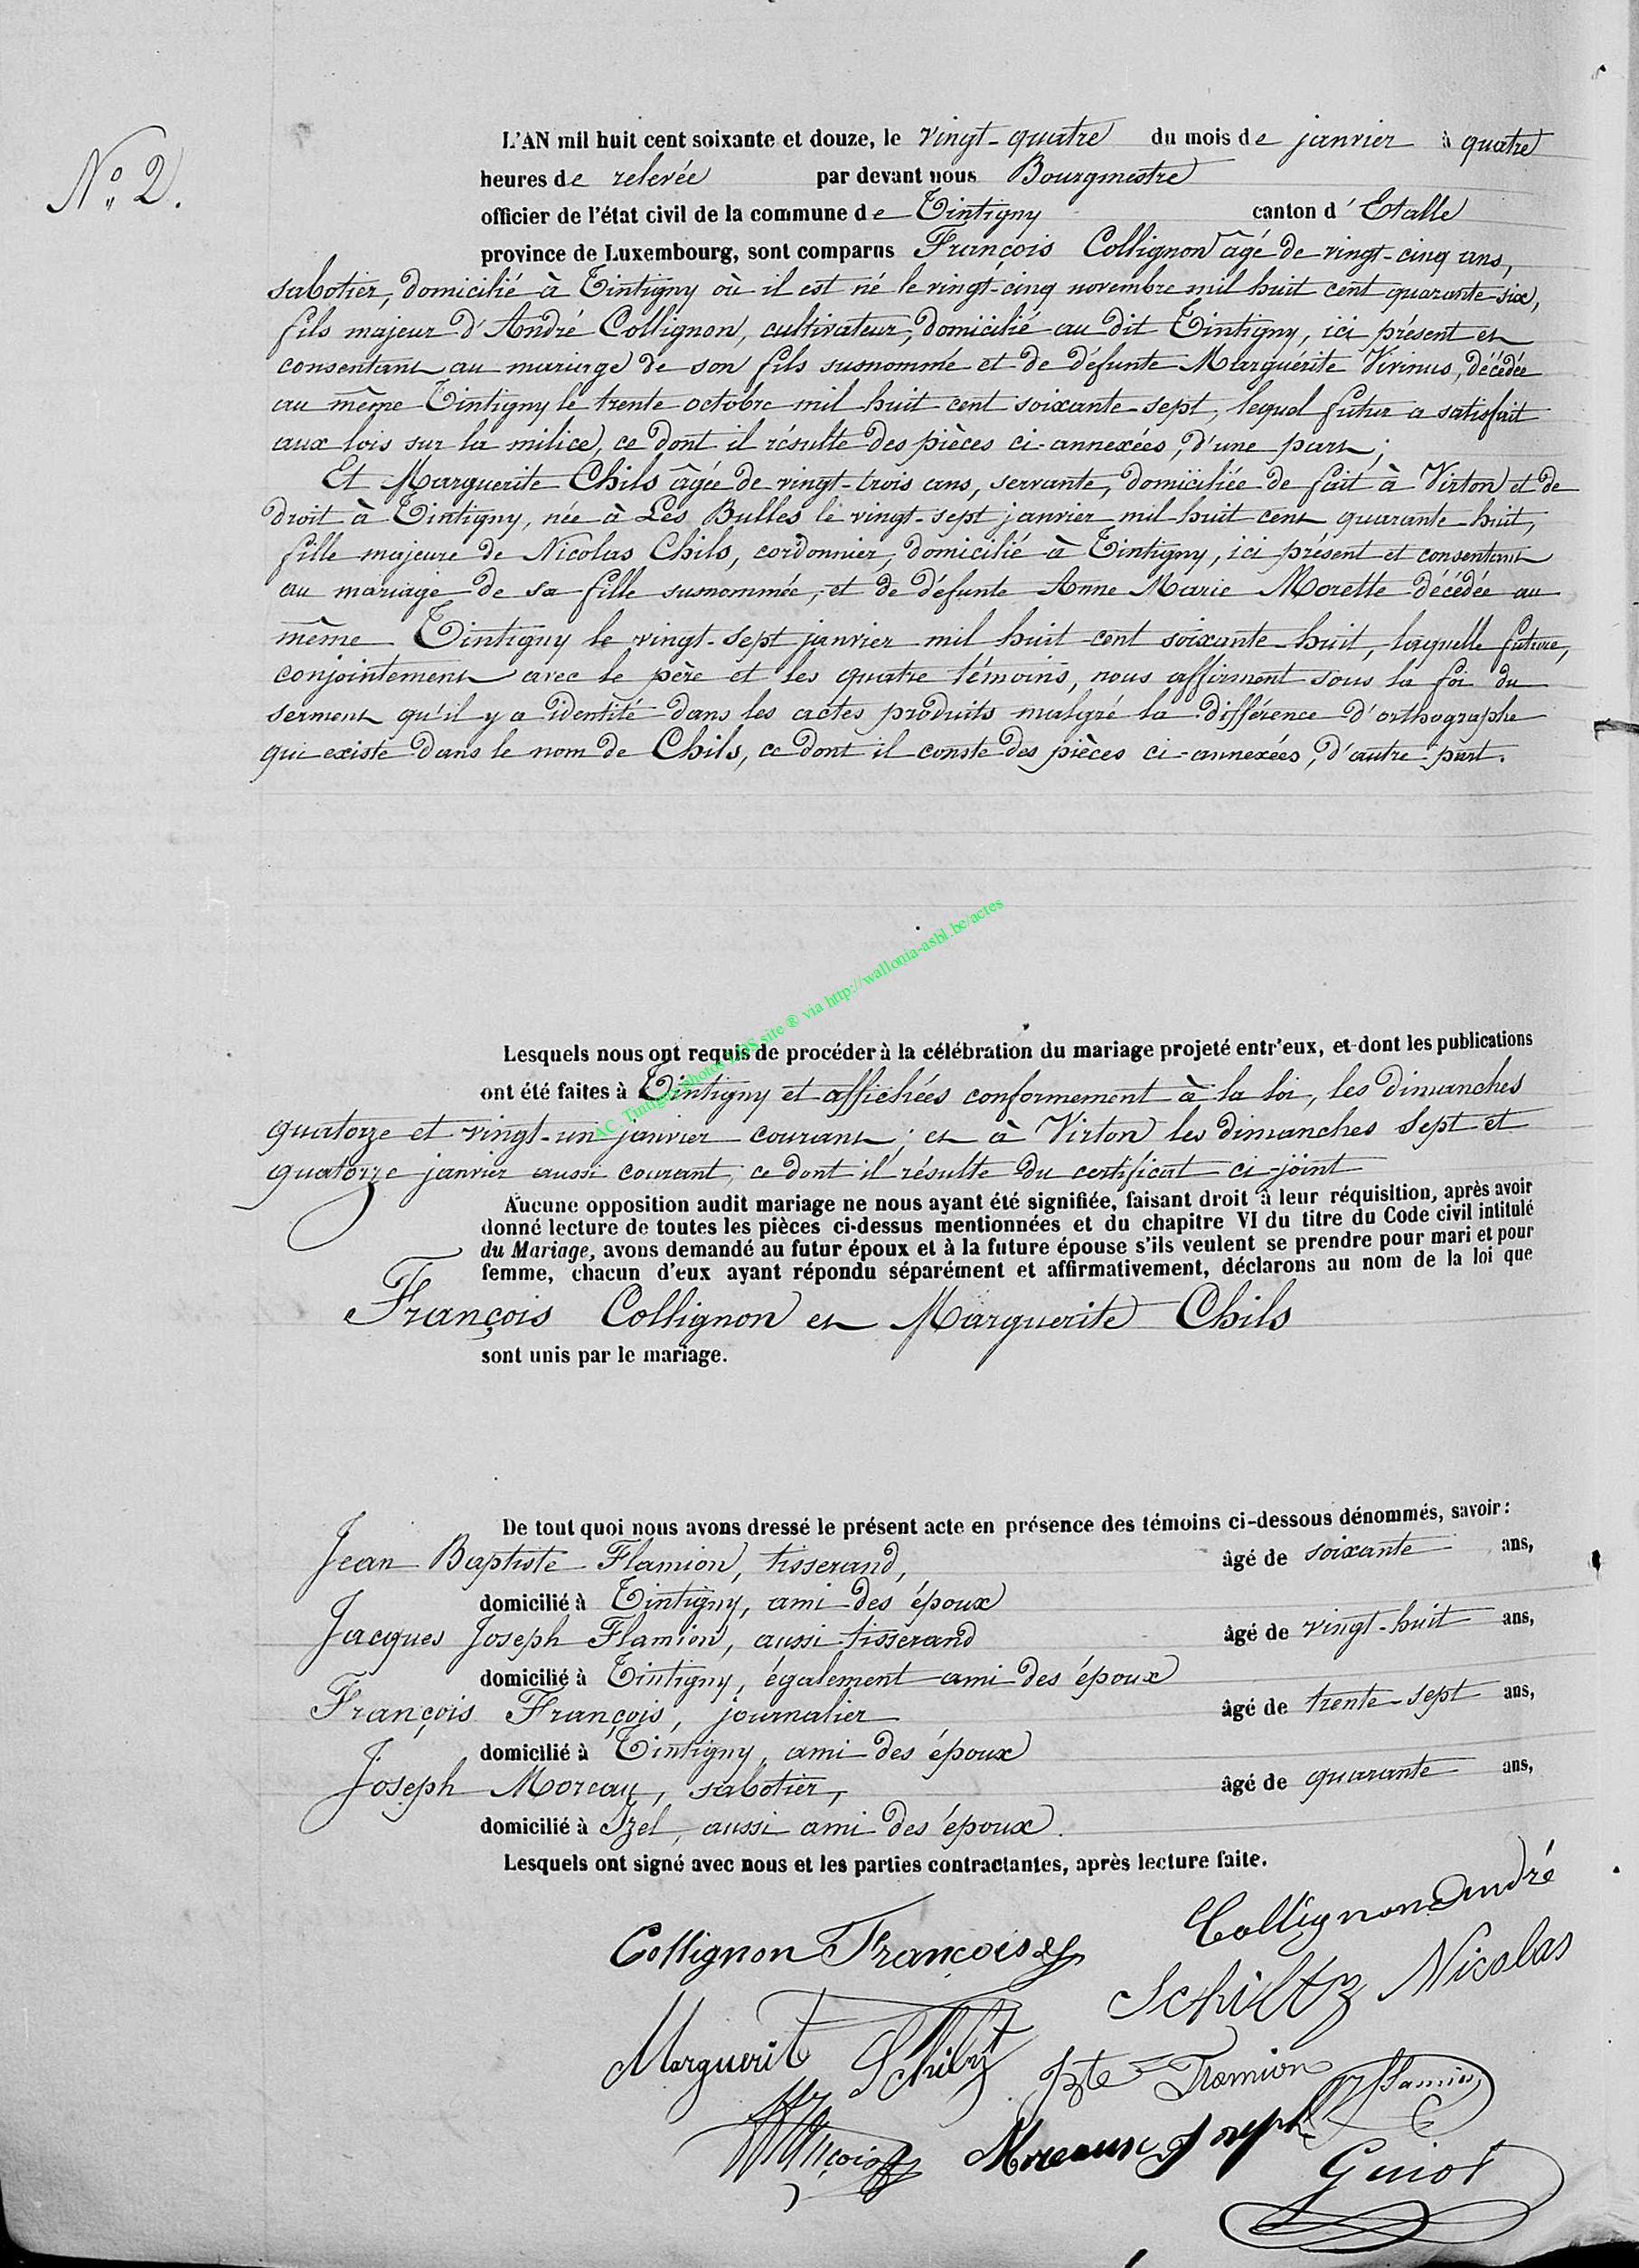 N° 2.
L'AN mil huit cent soixante et douze, le vingt-quatre du mois de janvier à quatre
heures de relevée par devant nous Bourgmestre
officier de l'état civil de la commune de Tintigny canton d'Etalle
province de Luxembourg, sont comparus François Collignon âgé de vingt-cinq ans,
sabotier, domicilié à Tintigny où il est né le vingt-cinq novembre mil huit cent quarante-six,
fils majeur d'André Collignon, cultivateur, domicilié au dit Tintigny, ici présent et
consentant au mariage de son fils susnommé et de défunte Marguérite Virinus, décédée
au même Tintigny le trente octobre mil huit cent soixante-sept, lequel futur a satisfait
aux lois sur la milice, ce dont il résulte des pièces ci-annexées, d'une part;
Et Marguerite Chils âgée de vingt-trois ans, servante, domiciliée de fait à Virton et de
droit à Tintigny, née à Les Bulles le vingt-sept janvier mil huit cent quarante-huit,
fille majeure de Nicolas Chils, cordonnier, domicilié à Tintigny, ici présent et consentant
au mariage de sa fille susnommée, et de défunte Anne Marie Morette décédée au
même Tintigny le vingt-sept janvier mil huit cent soixante-huit, laquelle future,
conjointement avec le père et les quatre témoins, nous affirment sous la foi du
serment qu'il y a identité dans les actes produits malgré la différence d'orthographe
qui existe dans le nom de Chils, ce dont il conste des pièces ci-annexées, d'autre part.
AC. Tintigny photos LDS site ® via http://wallonia-asbl.be/actes
Lesquels nous ont requis de procéder à la célébration du mariage projeté entr'eux, et dont les publications
ont été faites à Tintigny et affichées conformement à la loi, les dimanches
quatorze et vingt-un janvier courant; et à Virton les dimanches sept et
quatorze janvier aussi courant, ce dont il résulte du certificat ci-joint
Aucune opposition audit mariage ne nous ayant été signifiée, faisant droit à leur réquisition, après avoir
donné lecture de toutes les pièces ci-dessus mentionnées et du chapitre VI du titre du Code civil intitulé
du Mariage, avons demandé au futur époux et à la future épouse s'ils veulent se prendre pour mari et pour
femme, chacun d'eux ayant répondu séparément et affirmativement, déclarons au nom de la loi que
François Collignon et Marguerite Chils
sont unis par le mariage.
De tout quoi nous avons dressé le présent acte en présence des témoins ci-dessous dénommés, savoir:
Jean Baptiste Flamion, tisserand, âgé de soixante ans,
domicilié à Tintigny, ami des époux
Jacques Joseph Flamion, aussi tisserand âgé de vingt-huit ans,
domicilié à Tintigny, également ami des époux
François François, journalier âgé de trente-sept ans,
domicilié à Tintigny, ami des époux
Joseph Moreau, sabotier, âgé de quarante ans,
domicilié à Izel, aussi ami des époux.
Lesquels ont signé avec nous et les parties contractantes, après lecture faite.
Collignon André
Collignon François
Schiltz Nicolas
Marguerit Schiltz
Bte Flamion
Flamion
Moreaux Joseph
Guiot